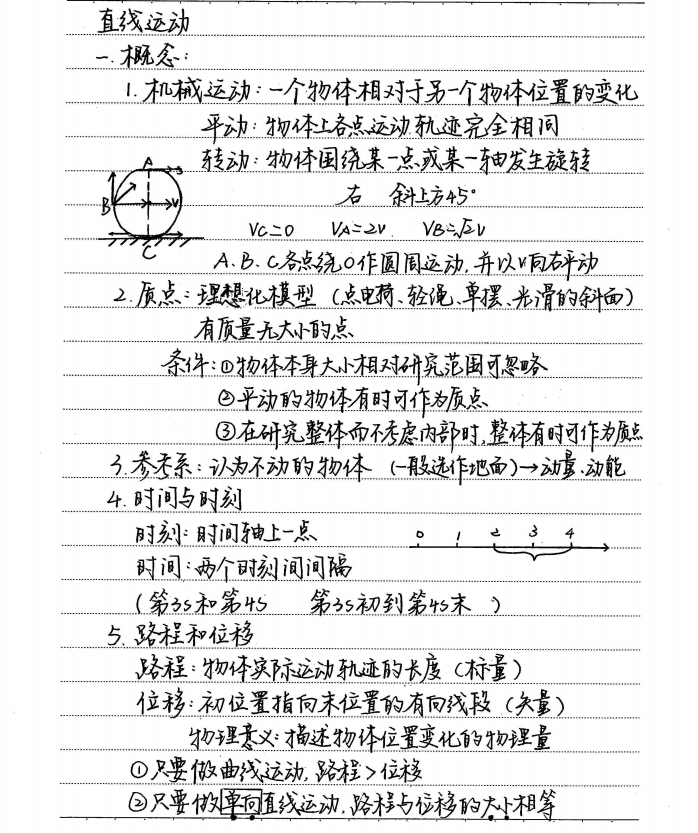 直线运动
一. 概念:
1. 机械运动: 一个物体相对于另一个物体位置的变化
平动: 物体上各点运动轨迹完全相同
转动: 物体围绕某一点或某一轴发生旋转
A
B
V
C
右 斜上方45°
Vc=0 VA=2v VB=√2v
A. B. C各点绕O作圆周运动, 并以v向右平动
2. 质点: 理想化模型 (点电荷、轻绳、单摆、光滑的斜面)
有质量无大小的点
条件: ①物体本身大小相对研究范围可忽略
②平动的物体有时可作为质点
③在研究整体而不考虑内部时, 整体有时可作为质点
3. 参考系: 认为不动的物体 (一般选作地面)→动量、动能
4. 时间与时刻
时刻: 时间轴上一点
0 1 2 3 4
时间: 两个时刻间间隔
(第3s和第4s 第3s初到第4s末 )
5. 路程和位移
路程: 物体实际运动轨迹的长度 (标量)
位移: 初位置指向末位置的有向线段 (矢量)
物理意义: 描述物体位置变化的物理量
①只要做曲线运动, 路程>位移
②只要做单向直线运动, 路程与位移的大小相等